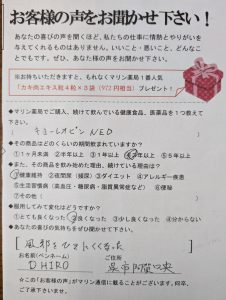 お客様の声をお聞かせ下さい!
あなたの喜びの声を聞くほど、私たちの仕事に情熱とやりがいを
与えてくれるものはありません。いいこと・悪いこと、どんなこ
とでもです。ぜひ、あなた様の声をお聞かせ下さい。
※お持ちいただきますと、もれなくマリン薬局1番人気
「カキ肉エキス粒4粒×3袋(972円相当)プレゼント!
◆マリン薬局でご購入、続けて飲んでいる健康食品、医薬品を1つ教えて
下さい。
キョーレオピン NEO
◆その商品はどのくらいの期間飲まれていますか?
①1ヶ月未満 ②半年以上 ③1年以上 ④2年以上 ⑤5年以上
◆また、その商品を飲み始めた理由、続けている理由は?
①健康維持 ②夜間尿(頻尿) ③ダイエット ④アレルギー疾患
⑤生活習慣病(高血圧・糖尿病・脂質異常症など) ⑥便秘
⑦その他(
◆服用してみて変化はどうですか?
①とても良くなった ②良くなった ③少し良くなった ④分からない
◆あなたの喜びの気持ちをぜひ聞かせて下さい。
風邪をひきにくくなった
お名前(ペンネーム) ご住所
DHIRO 呉市阿賀中央
☆この「お客様の声」がマリン通信に載ることがございます。何卒、
ご了承下さいませ。